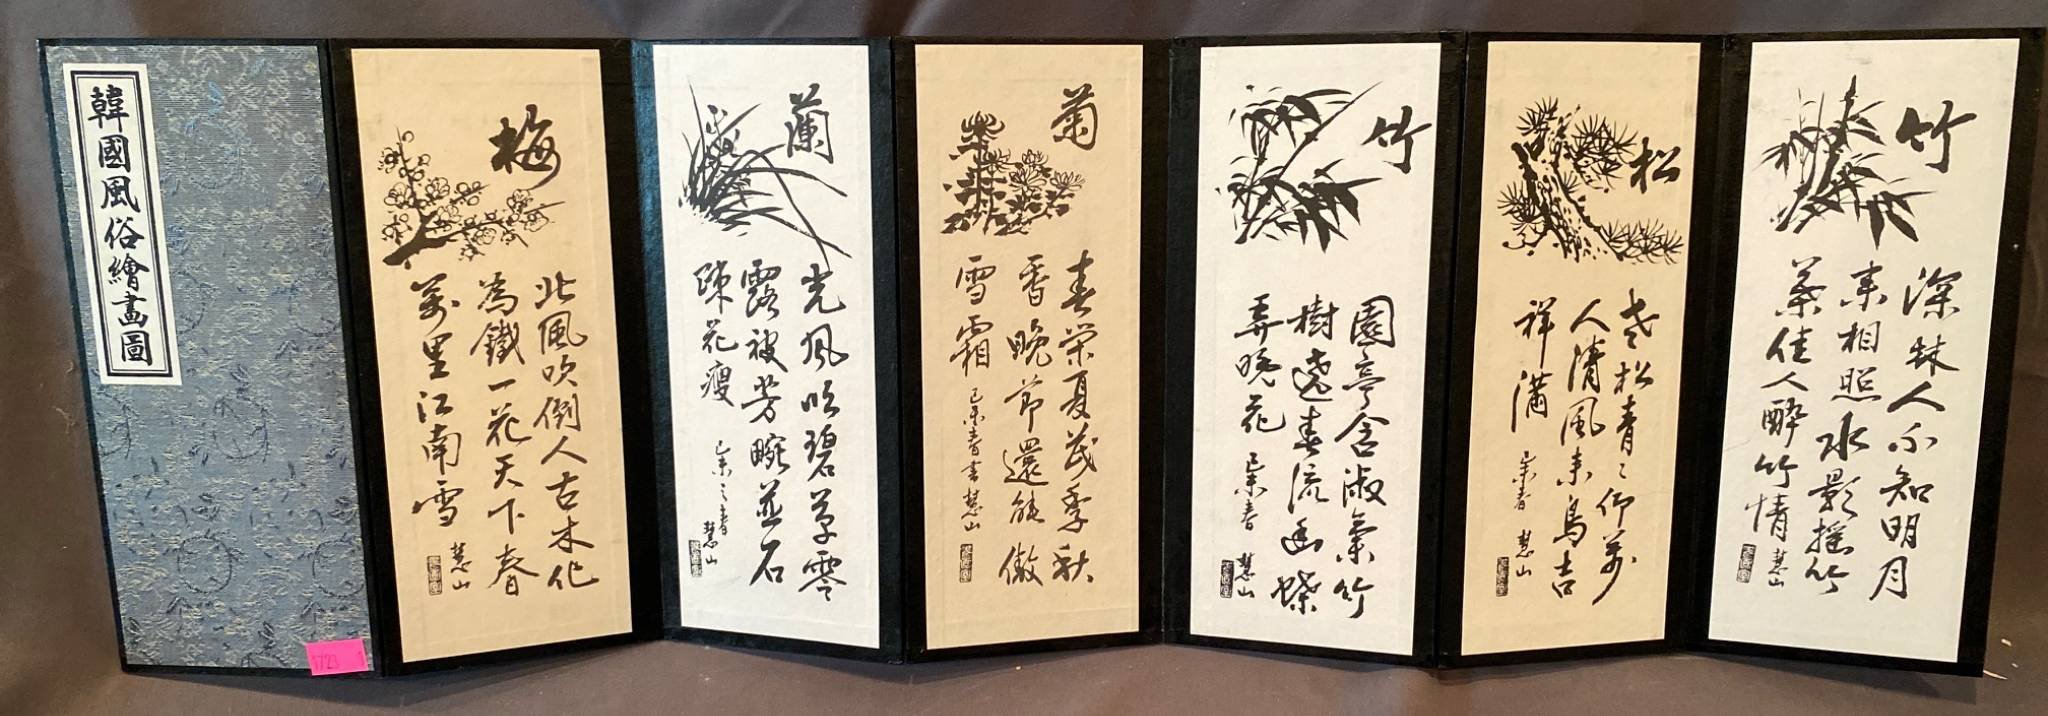 韓國風俗繪畫圖
1723
梅
北風吹倒人古木化
為鐵一花天下春
萬里江南雪
慧山
蘭
光風吹碧草零
露被芳畹並石
疎花瘦
己未之春
慧山
菊
春榮夏茂季秋
香晚節還能傲
雪霜
己未春書慧山
竹
園亭含淑氣竹
樹遶春流幽蝶
弄晚花
己未春
慧山
松
老松青〻仰萬
人清風来鳥吉
祥满
己未春
慧山
竹
深林人不知明月
来相照水影搖竹
葉佳人醉竹情
慧山